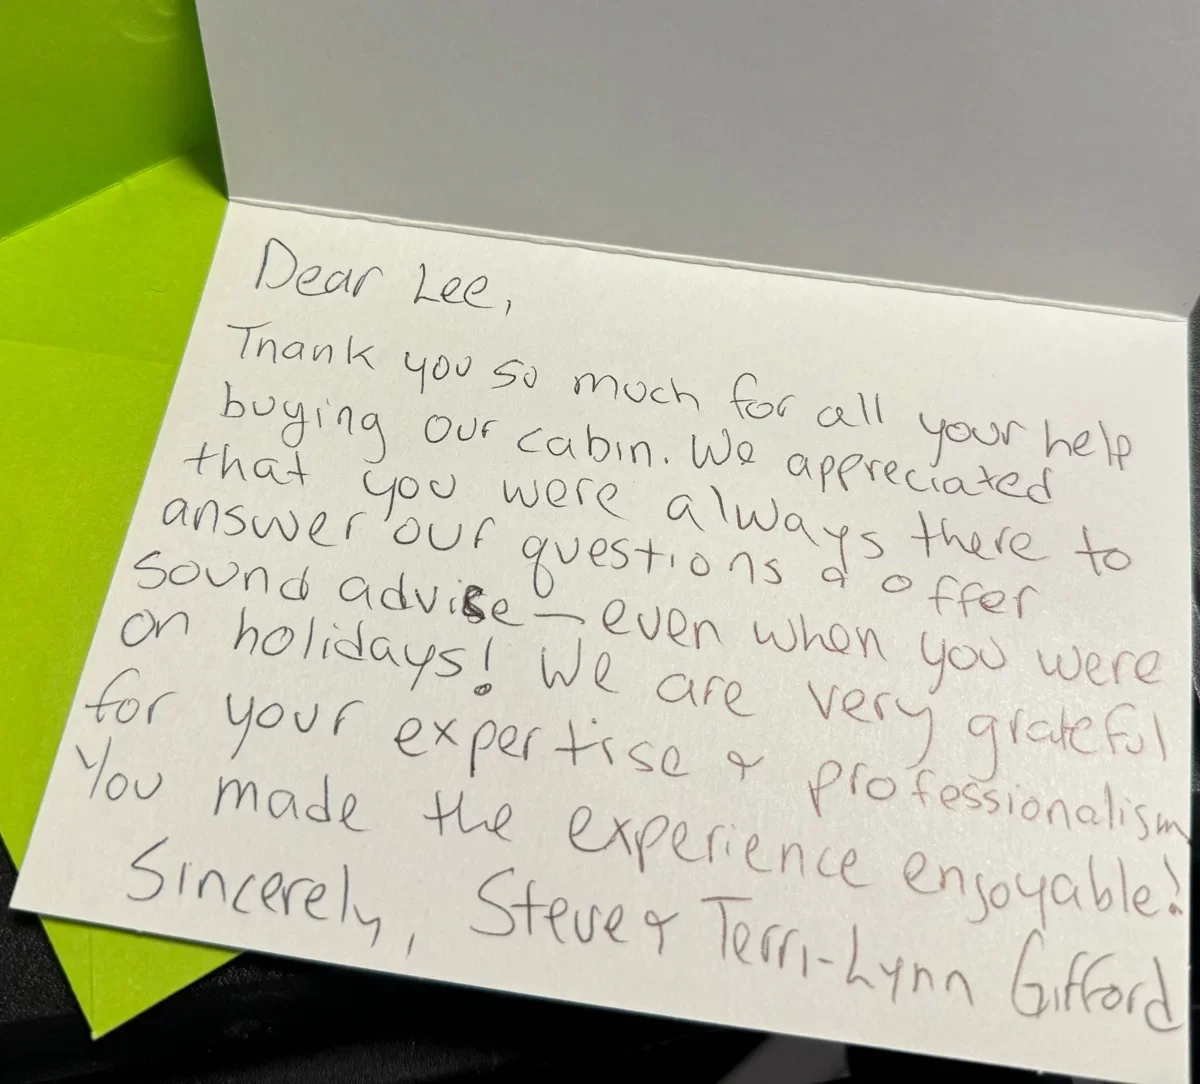 Dear Lee,
Thank you so much for all your help
buying our cabin. We appreciated
that you were always there to
answer our questions & offer
sound advise – even when you were
on holidays! We are very grateful
for your expertise & professionalism
You made the experience enjoyable!
Sincerely, Steve & Terri-Lynn Gifford